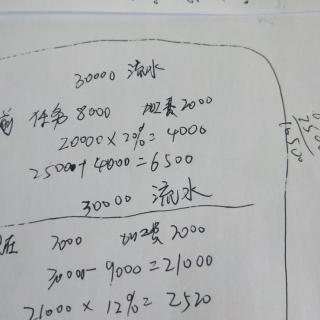 30000 流水
前 任务 8000 加工费 2000
20000 × 2% = 4000
25000 + 4000 = 6500
30000 流水
在 7000 加工费 2000
30000 - 9000 = 21000
21000 × 12% = 2520